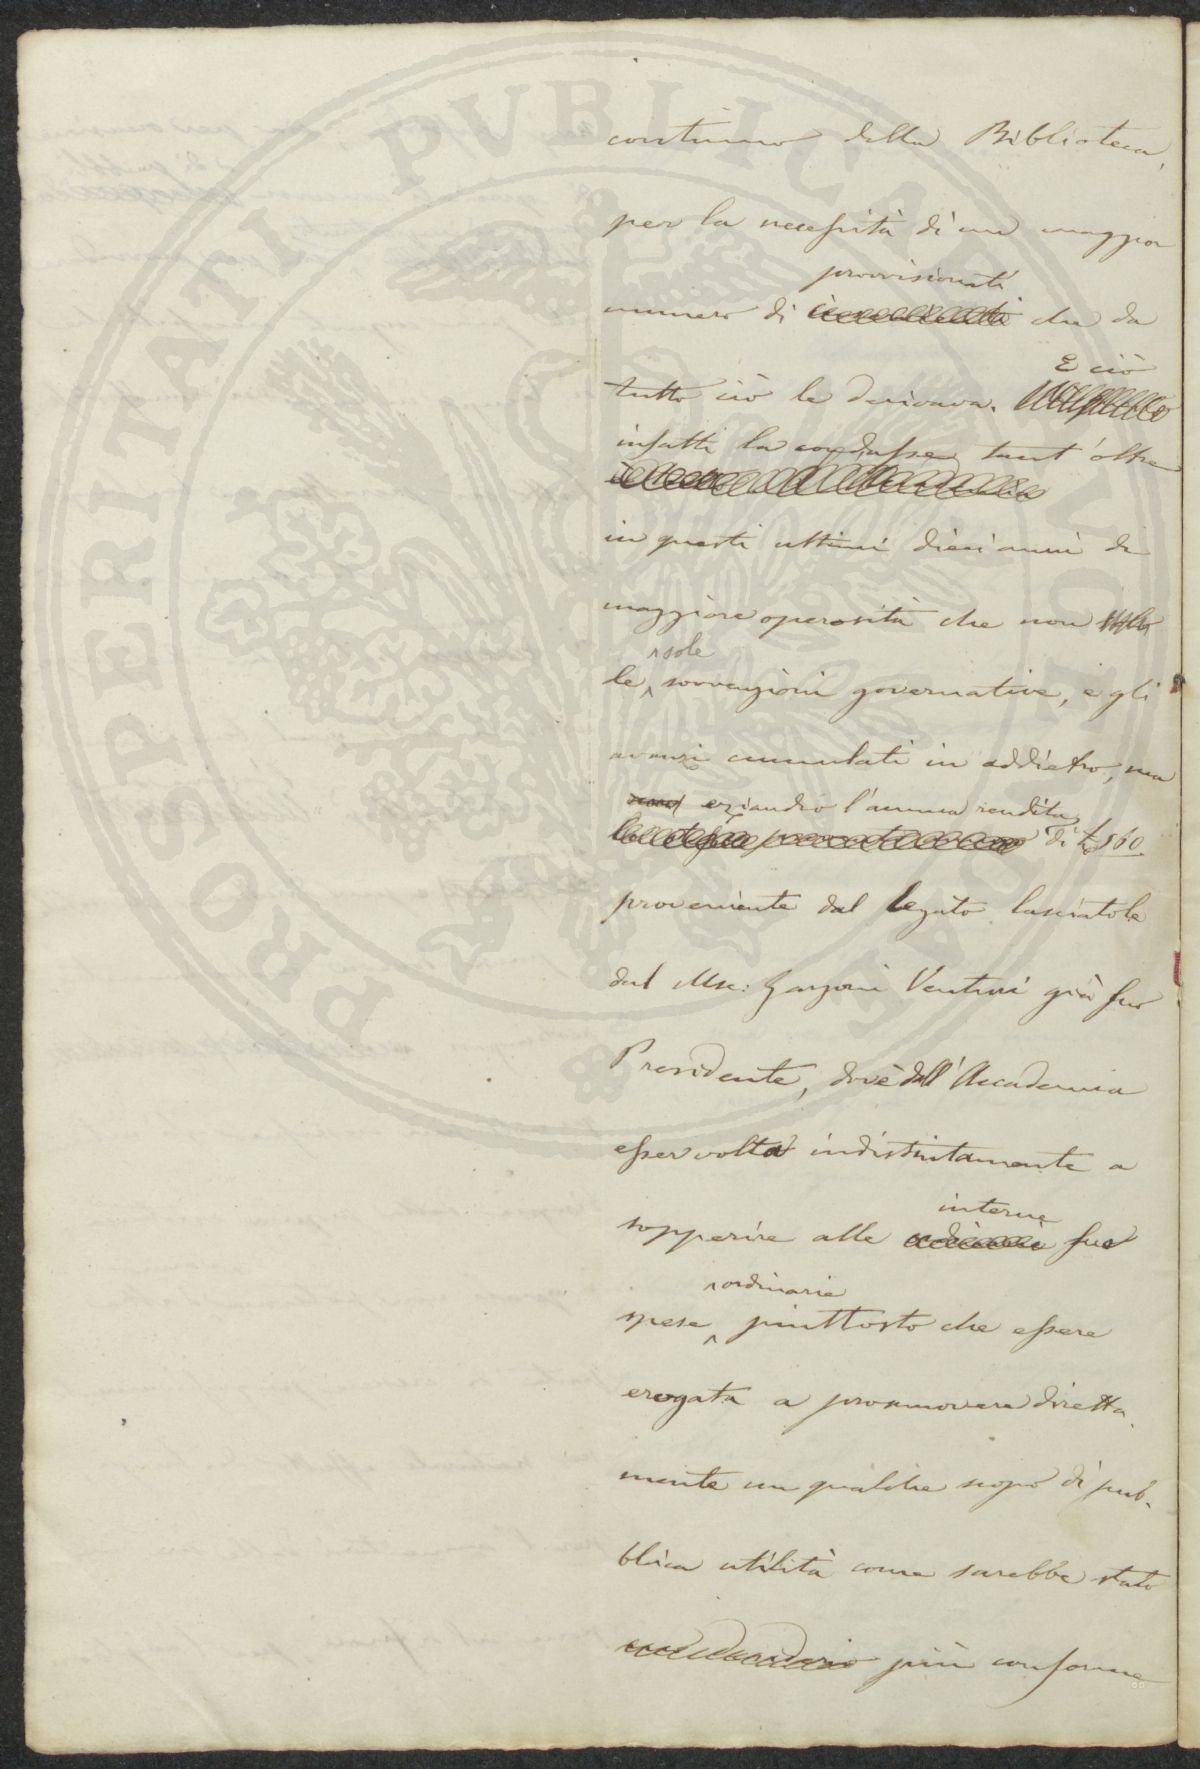 PROSPERITATI PVBLICAE
continuo della Biblioteca,
per la necessità di un maggior
provvisionati
numero di che da
E ciò
tutto ciò le derivava.
infatti la condusse tant'oltre
in questi ultimi dieci anni di
maggiore operosità che non
sole
le sovvenzioni governative, e gli
avanzi cumulati in addietro, ma
eziandio l'annua rendita
di £560
proveniente dal legato lasciatole
dal Mse: Garzoni Venturi già suo
Presidente, dovè dall'Accademia
esser volta indistintamente a
interne
sopperire alle sue
ordinarie
spese piuttosto che essere
erogata a promuovere diretta-
mente un qualche scopo di pub-
blica utilità come sarebbe stato
più conforme